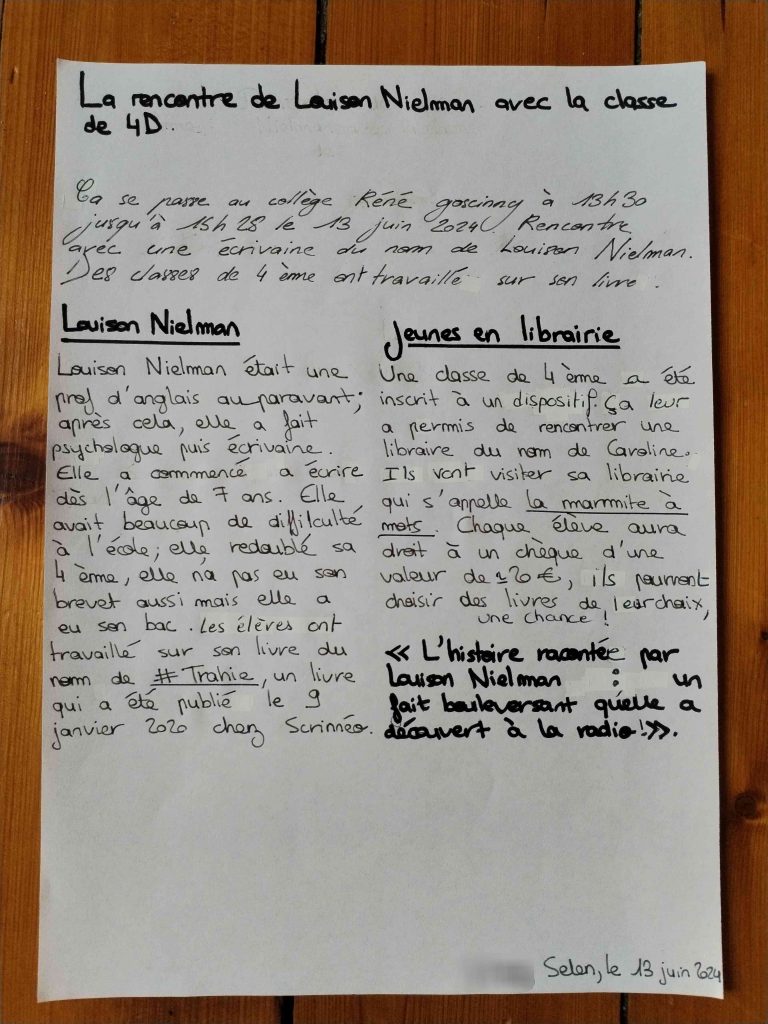 La rencontre de Louison Nielman avec la classe
de 4D.
Ça se passe au collège Réné goscinny à 13h30
jusqu'à 15h28 le 13 juin 2024. Rencontre
avec une écrivaine du nom de Louison Nielman.
Des classes de 4 ème ont travaillé sur son livre.
Louison Nielman
Louison Nielman était une
prof d'anglais au paravant;
après cela, elle a fait
psychologue puis écrivaine.
Elle a commencé a écrire
dès l'âge de 7 ans. Elle
avait beaucoup de difficulté
à l'école; elle redoublé sa
4 ème, elle n'a pas eu son
brevet aussi mais elle a
eu son bac. Les élèves ont
travaillé sur son livre du
nom de # Trahie, un livre
qui a été publié le 9
janvier 2020 chez Scrinnéo.
Jeunes en librairie
Une classe de 4 ème a été
inscrit à un dispositif. Ça leur
a permis de rencontrer une
libraire du nom de Caroline.
Ils vont visiter sa librairie
qui s'appelle la marmite à
mots. Chaque élève aura
droit à un chèque d'une
valeur de ≃20 €, ils pourront
choisir des livres de leur choix,
une chance !
« L'histoire racontée par
Louison Nielman : un
fait bouleversant qu'elle a
découvert à la radio!».
Selen, le 13 juin 2024